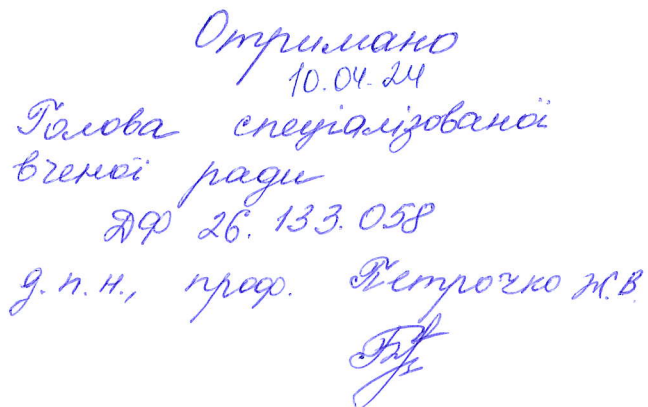 Отримано
10.04.24
Голова спеціалізованої
вченої ради
ДФ 26.133.058
д.п.н., проф. Петрочко Ж.В.